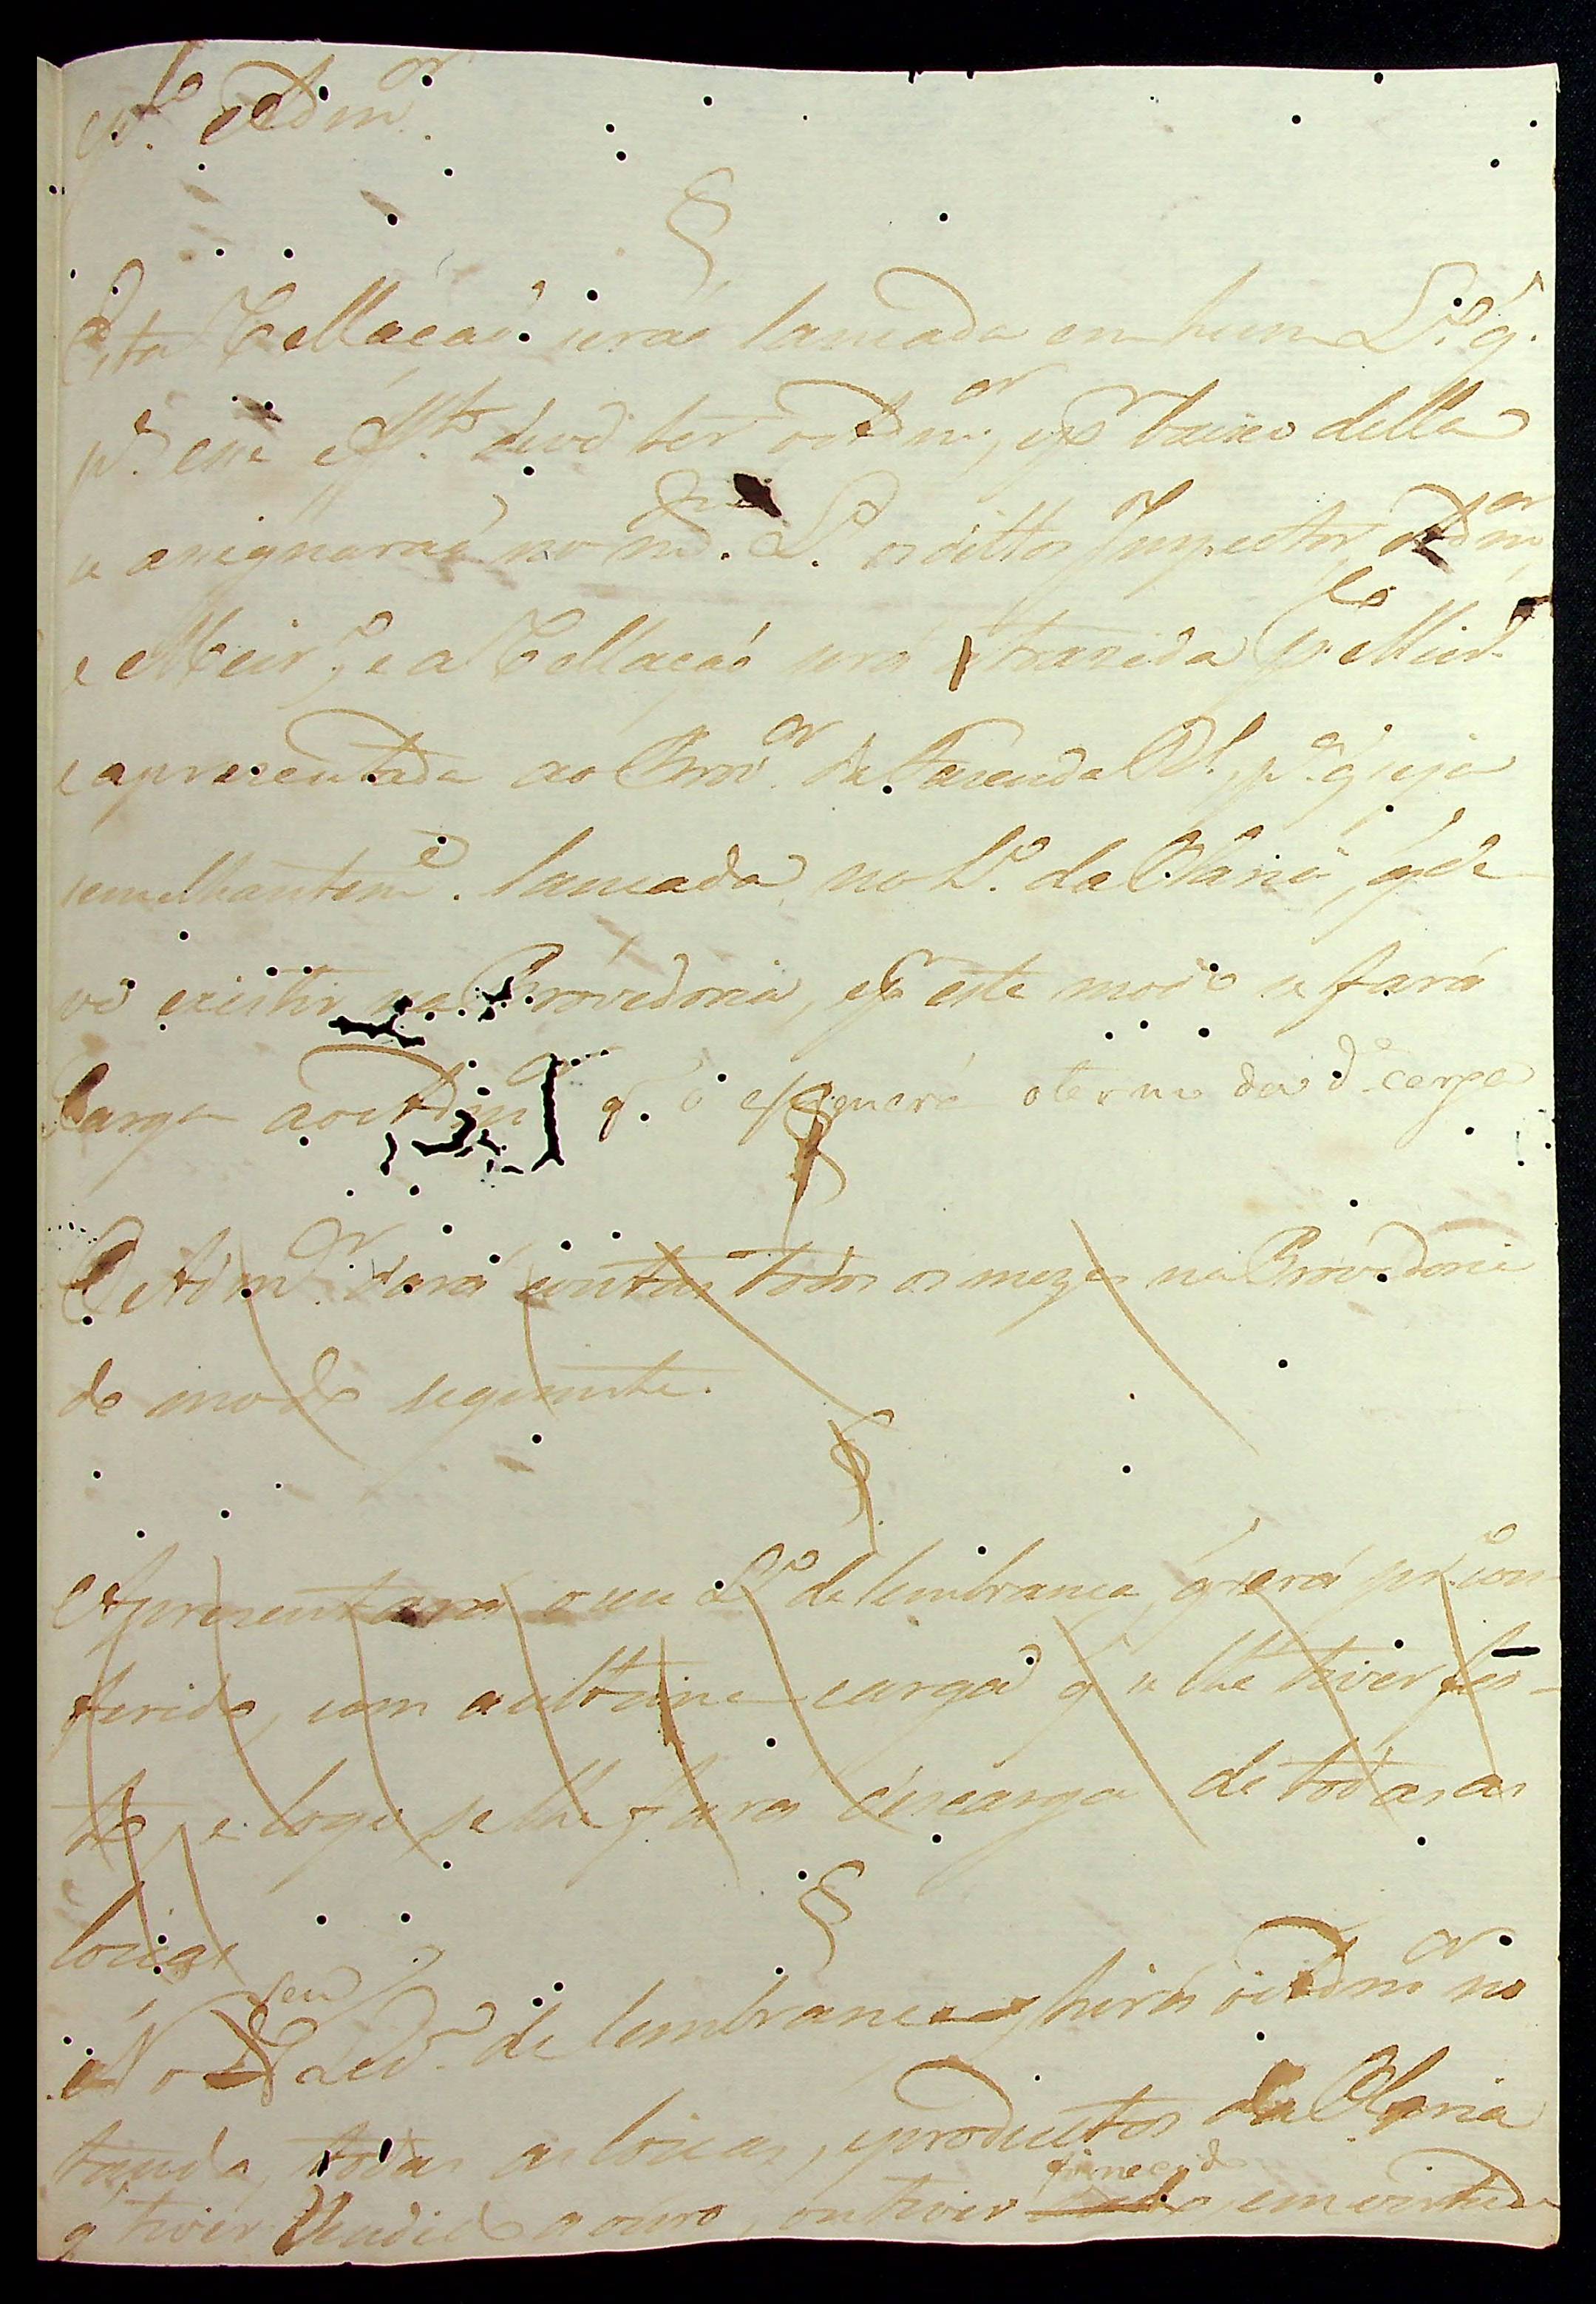 p.lo Adm.or
§
Esta Rellacaó será lancada em hum L.o q.
p.a esse eff.to deve ter o Adm.or, e p.r baixo della
se asignaraó no m.mo L.o os dittos Inspector, Adm.or,
e Meir.o, e a Rellaçaó será trazida p.lo Meir.o
e aprezentada ao Prov.or da Fazenda R.l, p.a q seja
semelhantem.e lancada no L.o da Olaria, q de
ve existir na Provedoria, e p.r este modo se fará
Carga ao Adm.or q. o termo da d.a carga
§
O Adm.or dará contas todos os mezes na Provedoria
do modo seguinte.
§
Aprezentará o seu L.o de lembranca, q será pr.o con-
ferido, com a ultima carga q se lhe tiver fei-
to, e logo se lhe fará descarga de todas as
loucas
§
No seu de lembranca hirá o Adm.or no
tando, todas as loucas, e productos da Olaria
q tiver Vendido a ouro, ou tiver fornecido em virtude